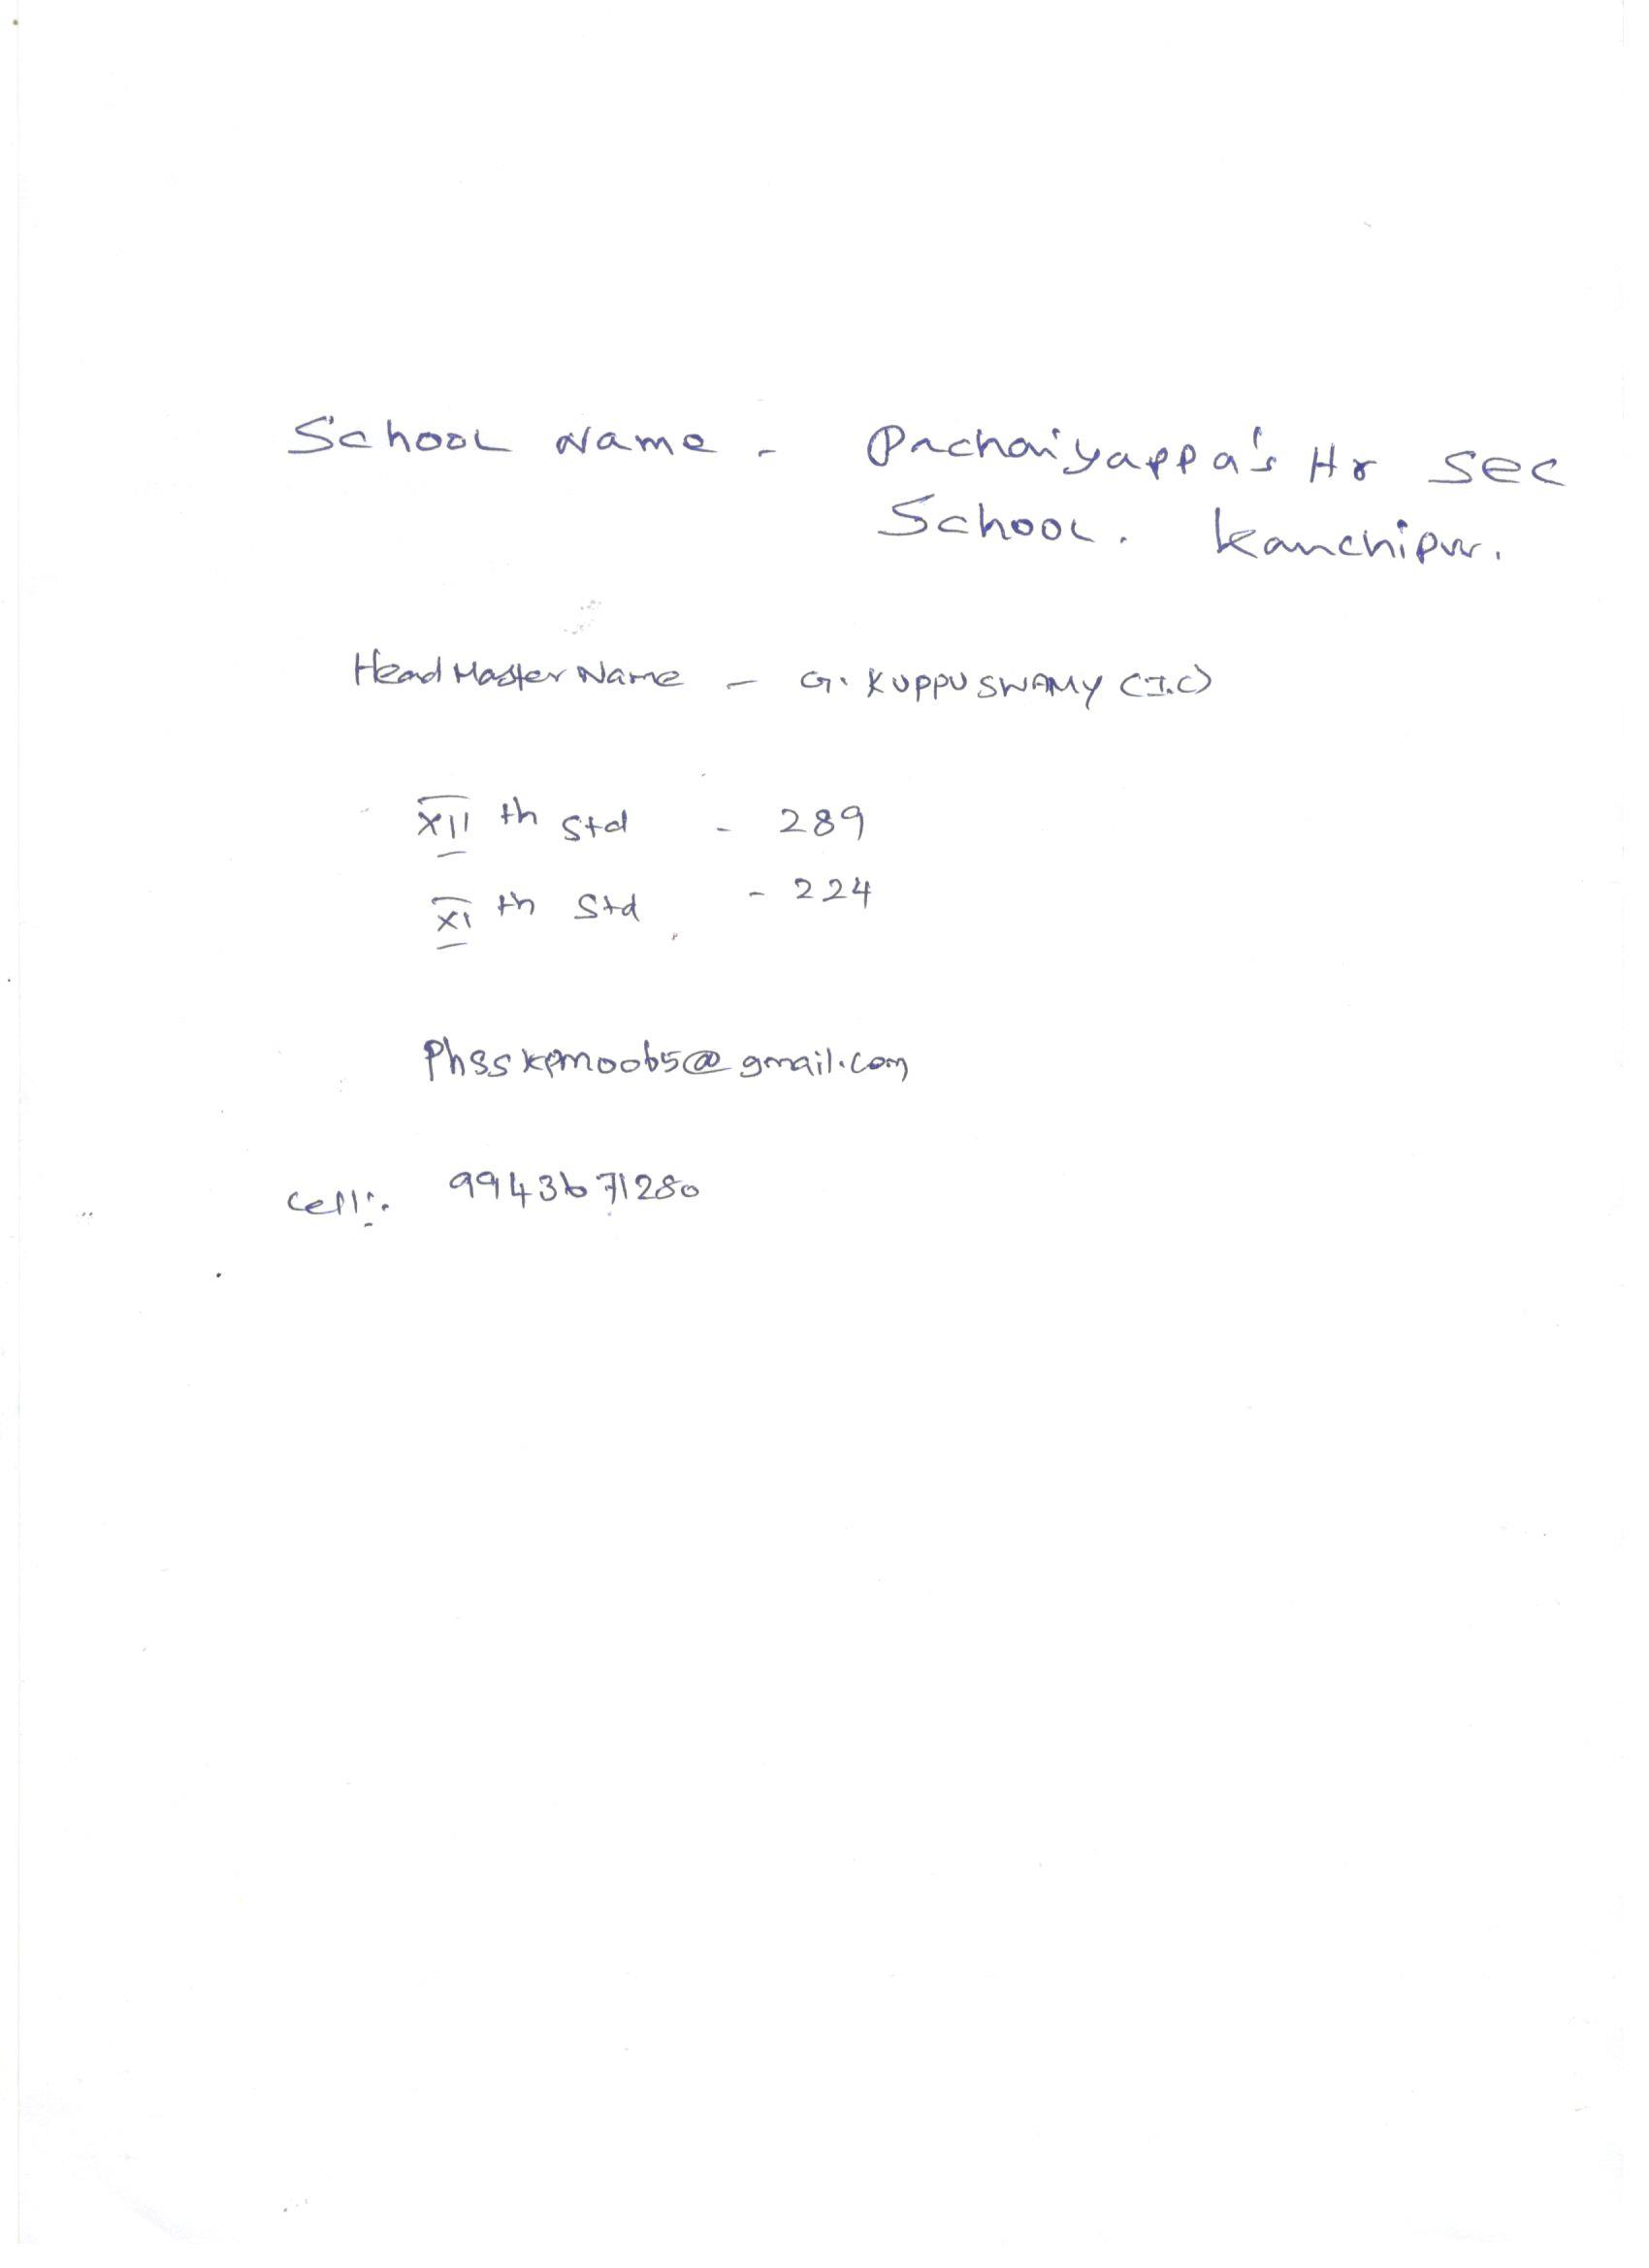 School Name - Pachaiyappa's Hr Sec
School. Kanchipur.
Head Master Name - G. KUPPUSWAMY (I.C)
XII th Std - 289
XI th Std - 224
Phsskpm0065@gmail.com
Cell:. 9943671280